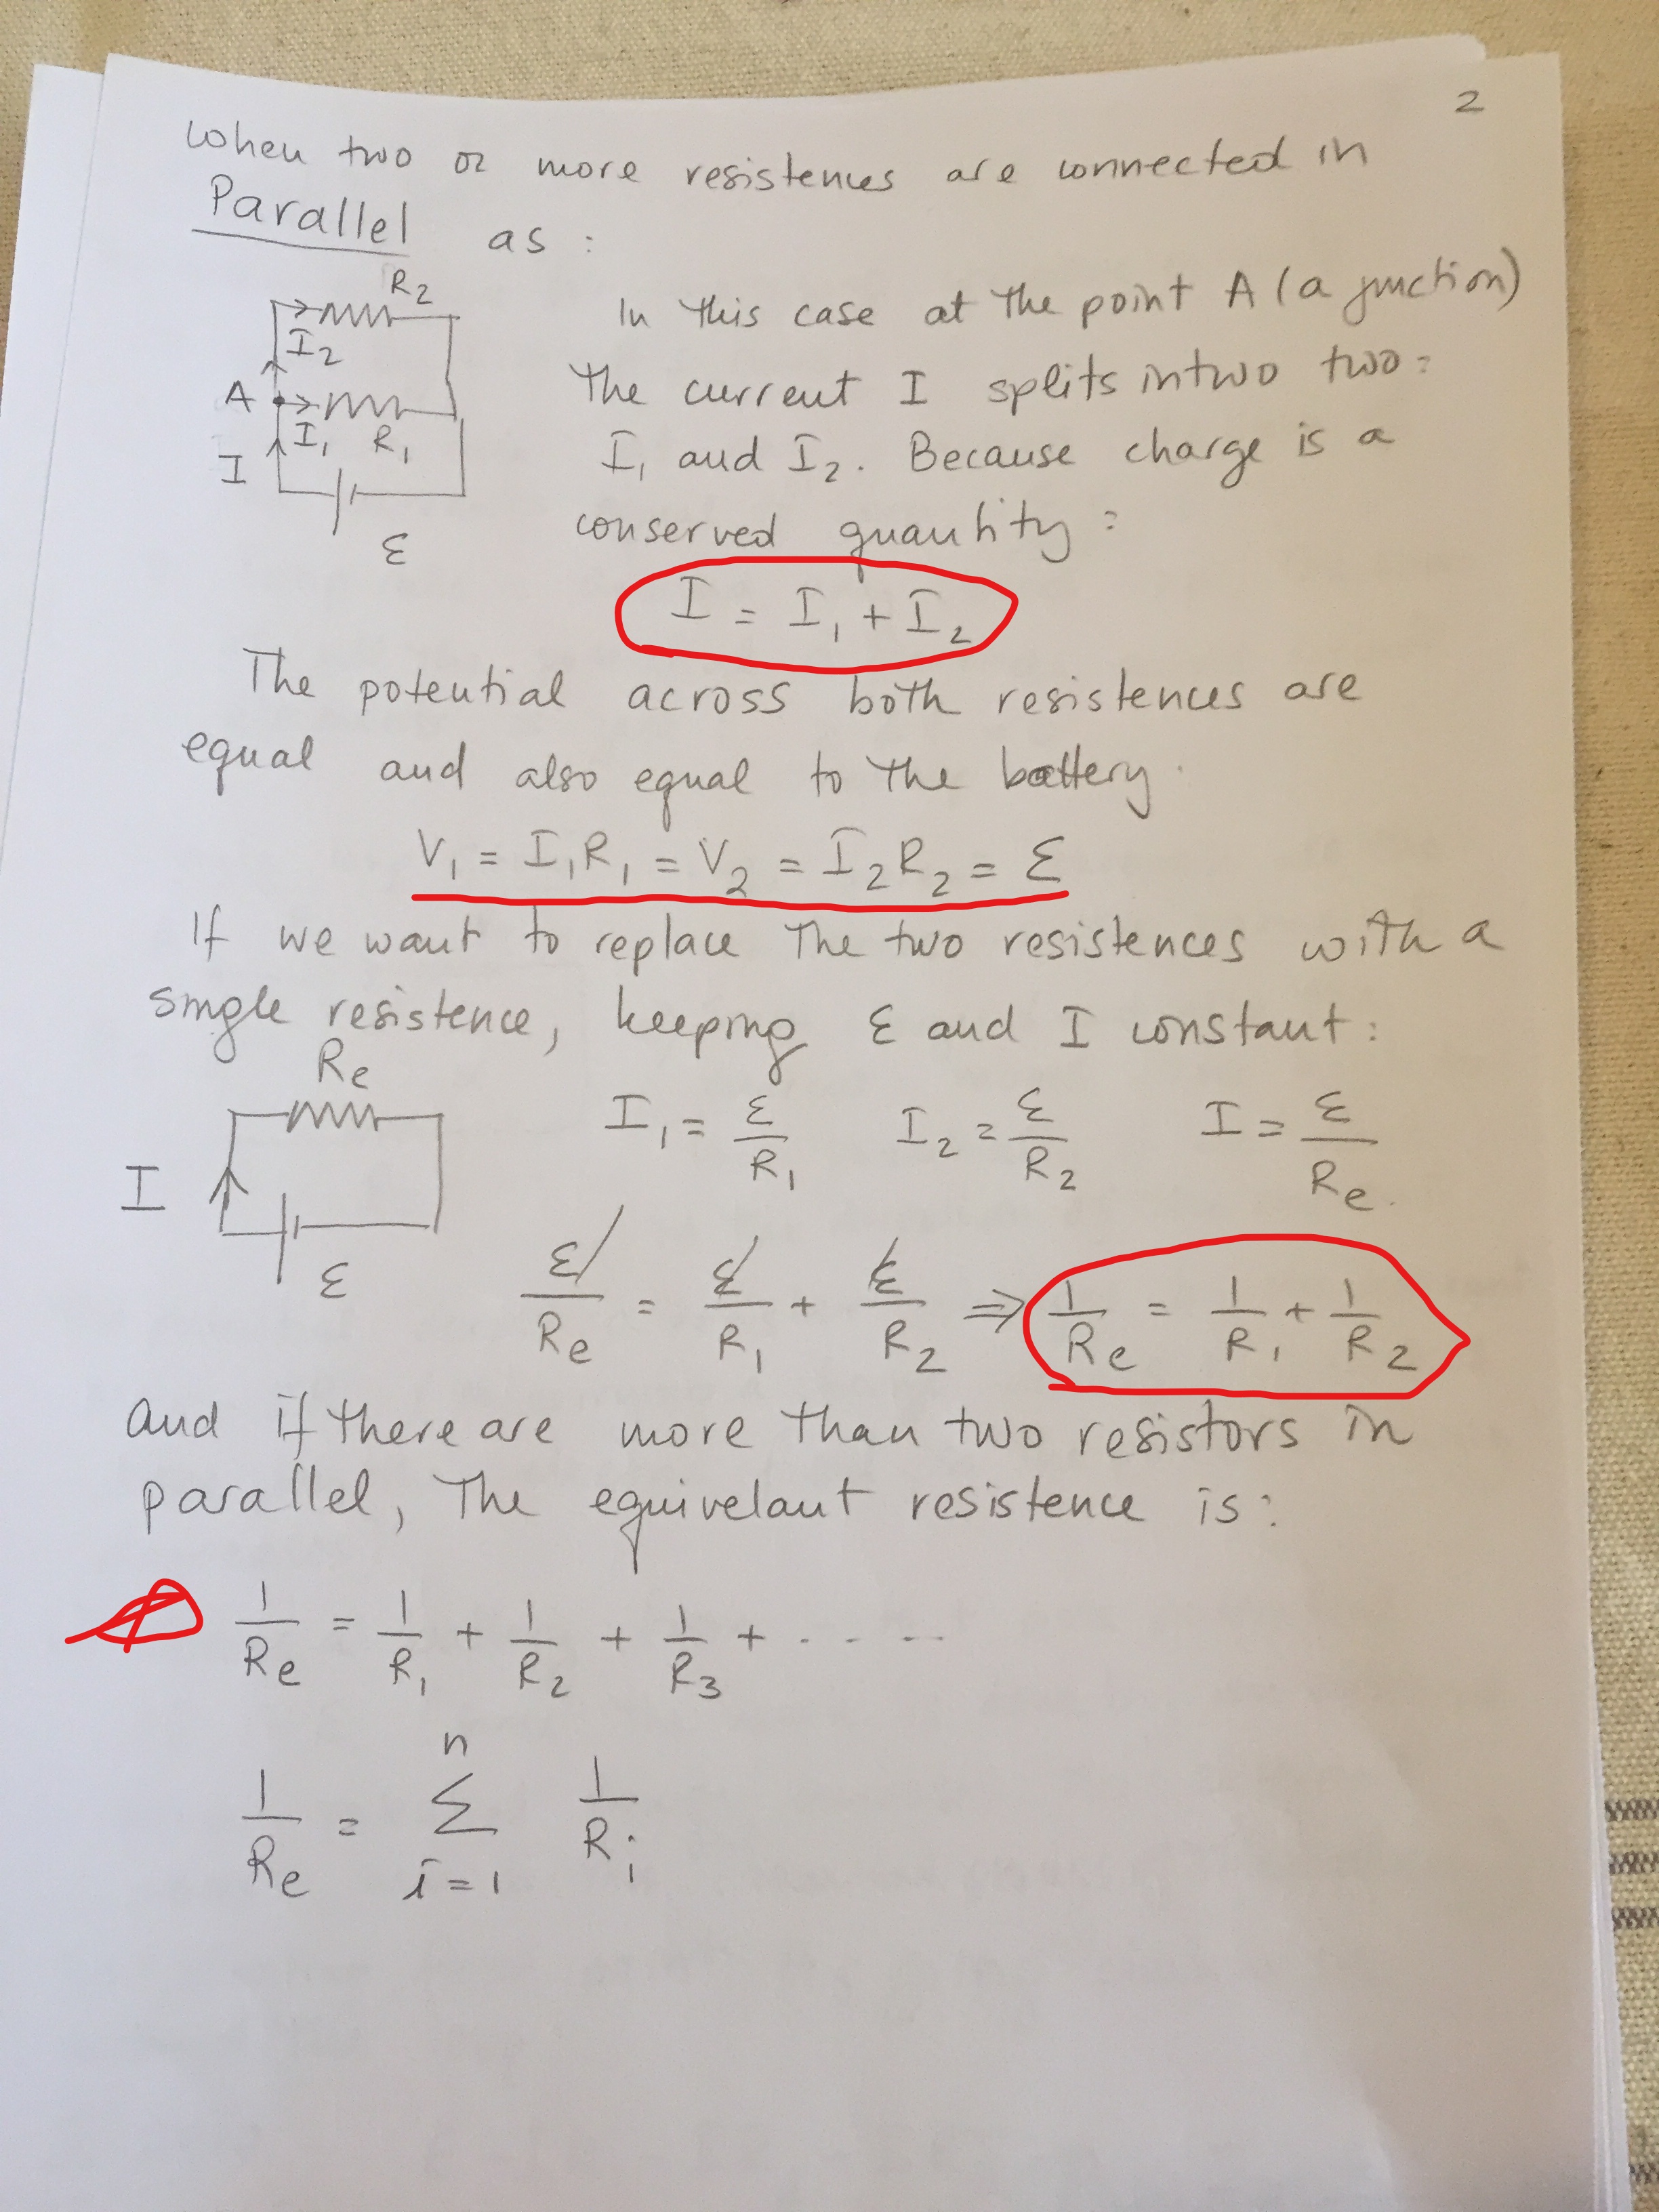 2
When two or more resistences are connected in
Parallel as :
R2
I2
A
I1 R1
I
ε
In this case at the point A (a junction)
the current I splits intwo two:
I1 and I2. Because charge is a
conserved quantity:
I = I1 + I2
The potential across both resistences are
equal and also equal to the battery.
V1 = I1R1 = V2 = I2R2 = ε
If we want to replace the two resistences with a
single resistence, keeping ε and I constant:
Re
I
ε
I1 = ε/R1 I2 = ε/R2 I = ε/Re.
ε/Re = ε/R1 + ε/R2 ⇒ 1/Re = 1/R1 + 1/R2
and if there are more than two resistors in
parallel, the equivelant resistence is:
1/Re = 1/R1 + 1/R2 + 1/R3 + .....
1/Re = Σ i=1 n 1/Ri